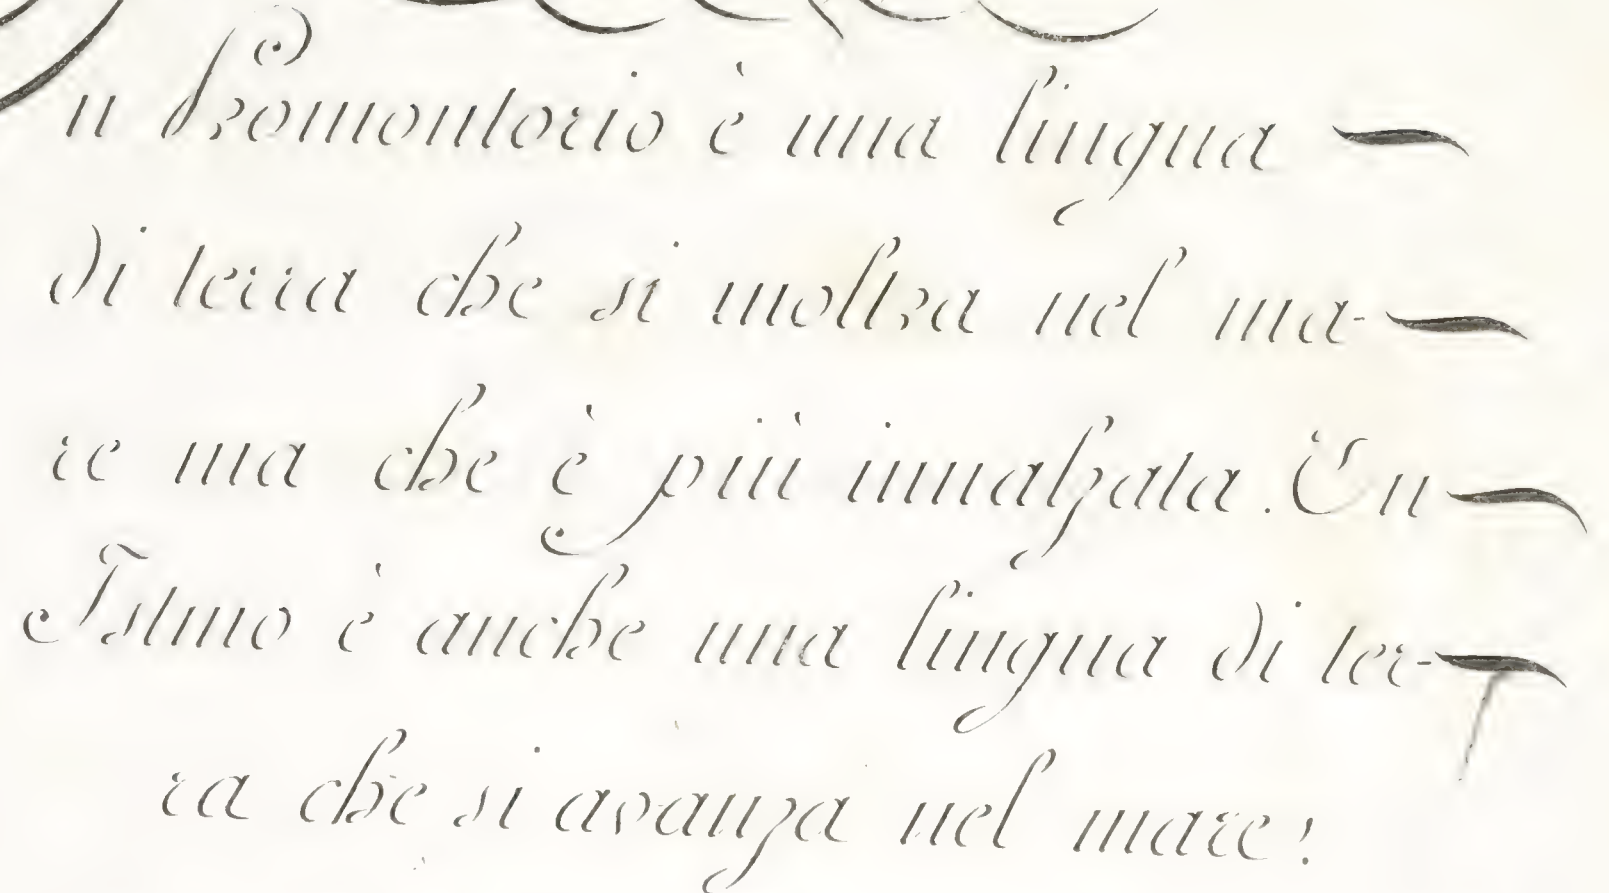 n Promontorio è una lingua
di terra che si moltra nel ma-
re ma che è più innalzata. Un
Istmo è anche una lingua di ter-
ra che si avanza nel mare: